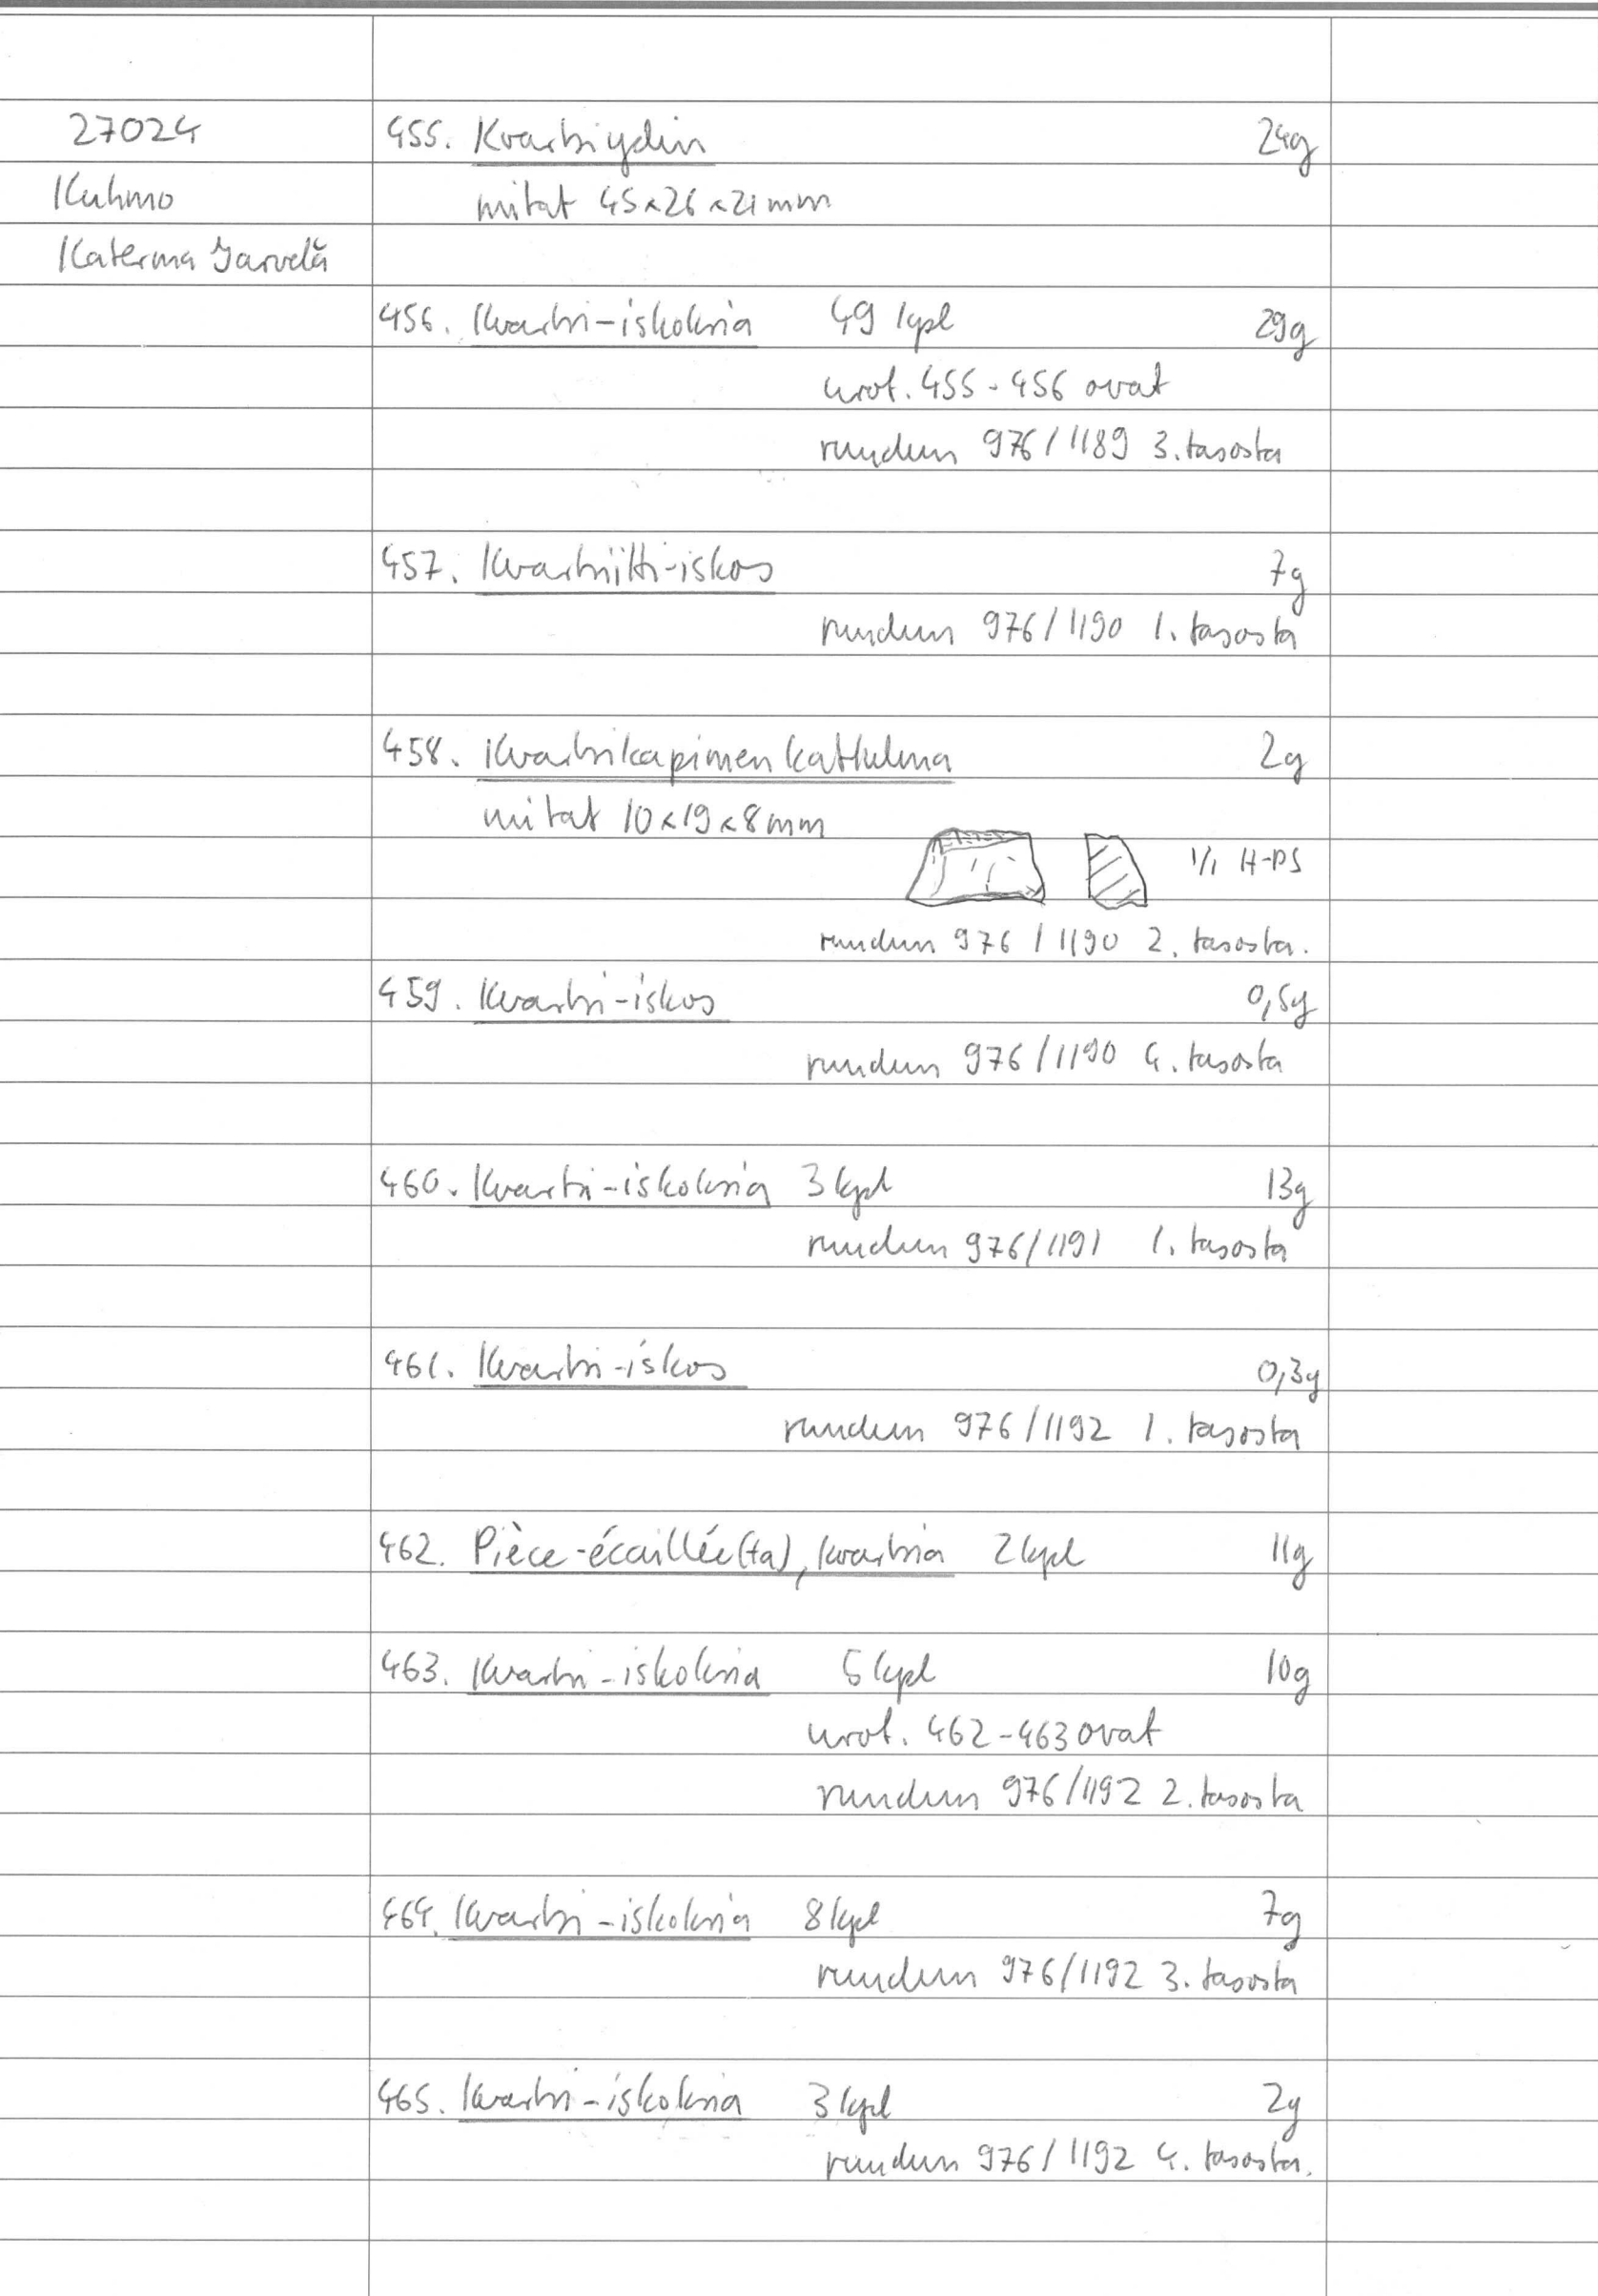 27024
Kuhmo
Katerma Jarvelä
455. Kvartsiydin 24g
mitat 45x26x21mm
456. Kvartsi-iskoksia 49 kpl 29g
nrot. 455-456 ovat
ruudun 976/1189 3. tasosta
457. Kvartsiitti-iskos 7g
ruudun 976/1190 1. tasosta
458. Kvartsikaapimen katkelma 2g
mitat 10x19x8mm
1/1 H-PS
ruudun 976/1190 2. tasosta.
459. Kvartsi-iskos 0,5g
ruudun 976/1190 4. tasosta
460. Kvartsi-iskoksia 3 kpl 13g
ruudun 976/1191 1. tasosta
461. Kvartsi-iskos 0,3g
ruudun 976/1192 1. tasosta
462. Pièce-écaillée(ta), kvartsia 2 kpl 11g
463. Kvartsi-iskoksia 5 kpl 10g
nrot. 462-463 ovat
ruudun 976/1192 2. tasosta
464. Kvartsi-iskoksia 8 kpl 7g
ruudun 976/1192 3. tasosta
465. Kvartsi-iskoksia 3 kpl 2g
ruudun 976/1192 4. tasosta.